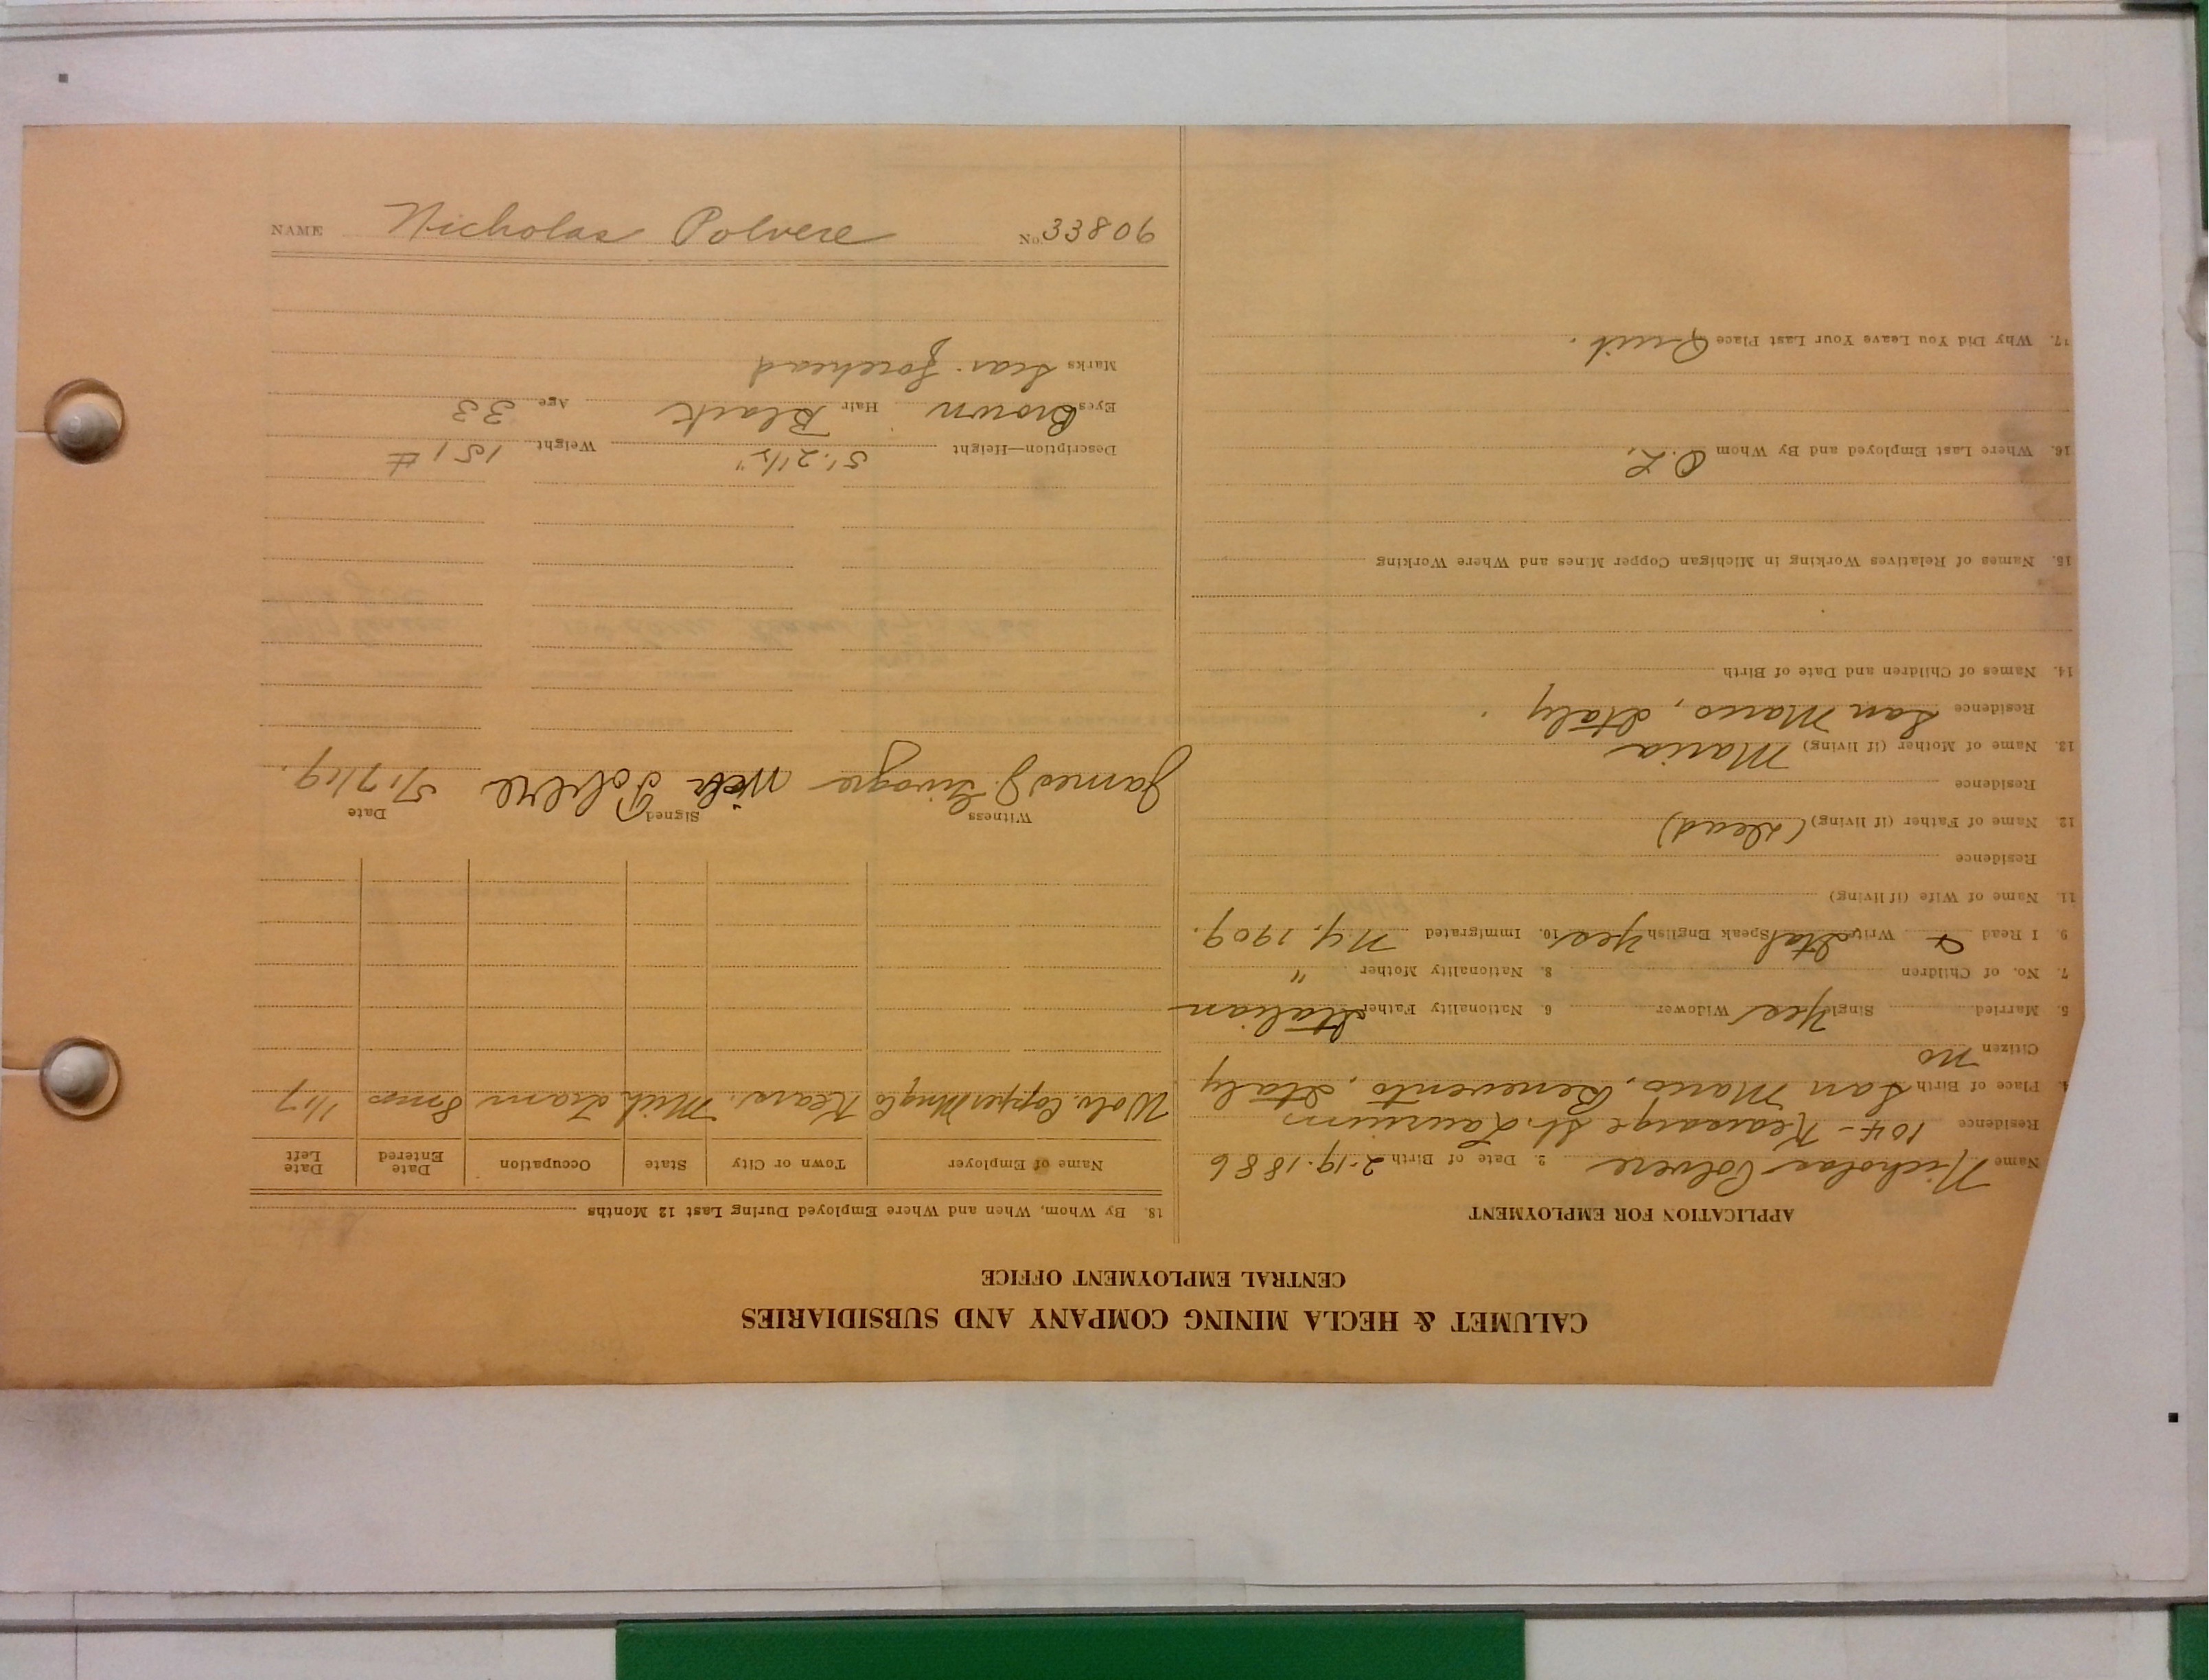 CALUMET & HECLA MINING COMPANY AND SUBSIDIARIES
CENTRAL EMPLOYMENT OFFICE
APPLICATION FOR EMPLOYMENT
Name Nicholas Polvere 2. Date of Birth 2-19-1886
Residence 104- Kearsarge St. Laurium
4. Place of Birth San Marco, Benevento, Italy
Citizen no
5. Married Single Yes Widower 6 Nationality Father Italian
7. No. of Children 8. Nationality Mother "
9. I Read & Write Ital Speak English Yes 10. Immigrated N.Y. 1909.
11. Name of Wife (if living)
Residence
12 Name of Father (if living) (Dead)
Residence
13. Name of Mother (if living) Maria
Residence San Marco, Italy
14. Names of Children and Date of Birth
15. Names of Relatives Working in Michigan Copper Mines and Where Working
16. Where Last Employed and By Whom
17. Why Did You Leave Your Last Place Quit.
18. By Whom, When and Where Employed During Last 12 Months
Name of Employer Town or City State Occupation Date Entered Date Left
Wolv. Copper Mng Co Kears. Mich Tram 8 mos 1/17
Witness Signed Date
James J. Polvere 5/17/19.
Description—Height 5'. 2 1/2" Weight 151 #
Eyes Brown Hair Black Age 33
Marks Scar forehead
NAME Nicholas Polvere No. 33806